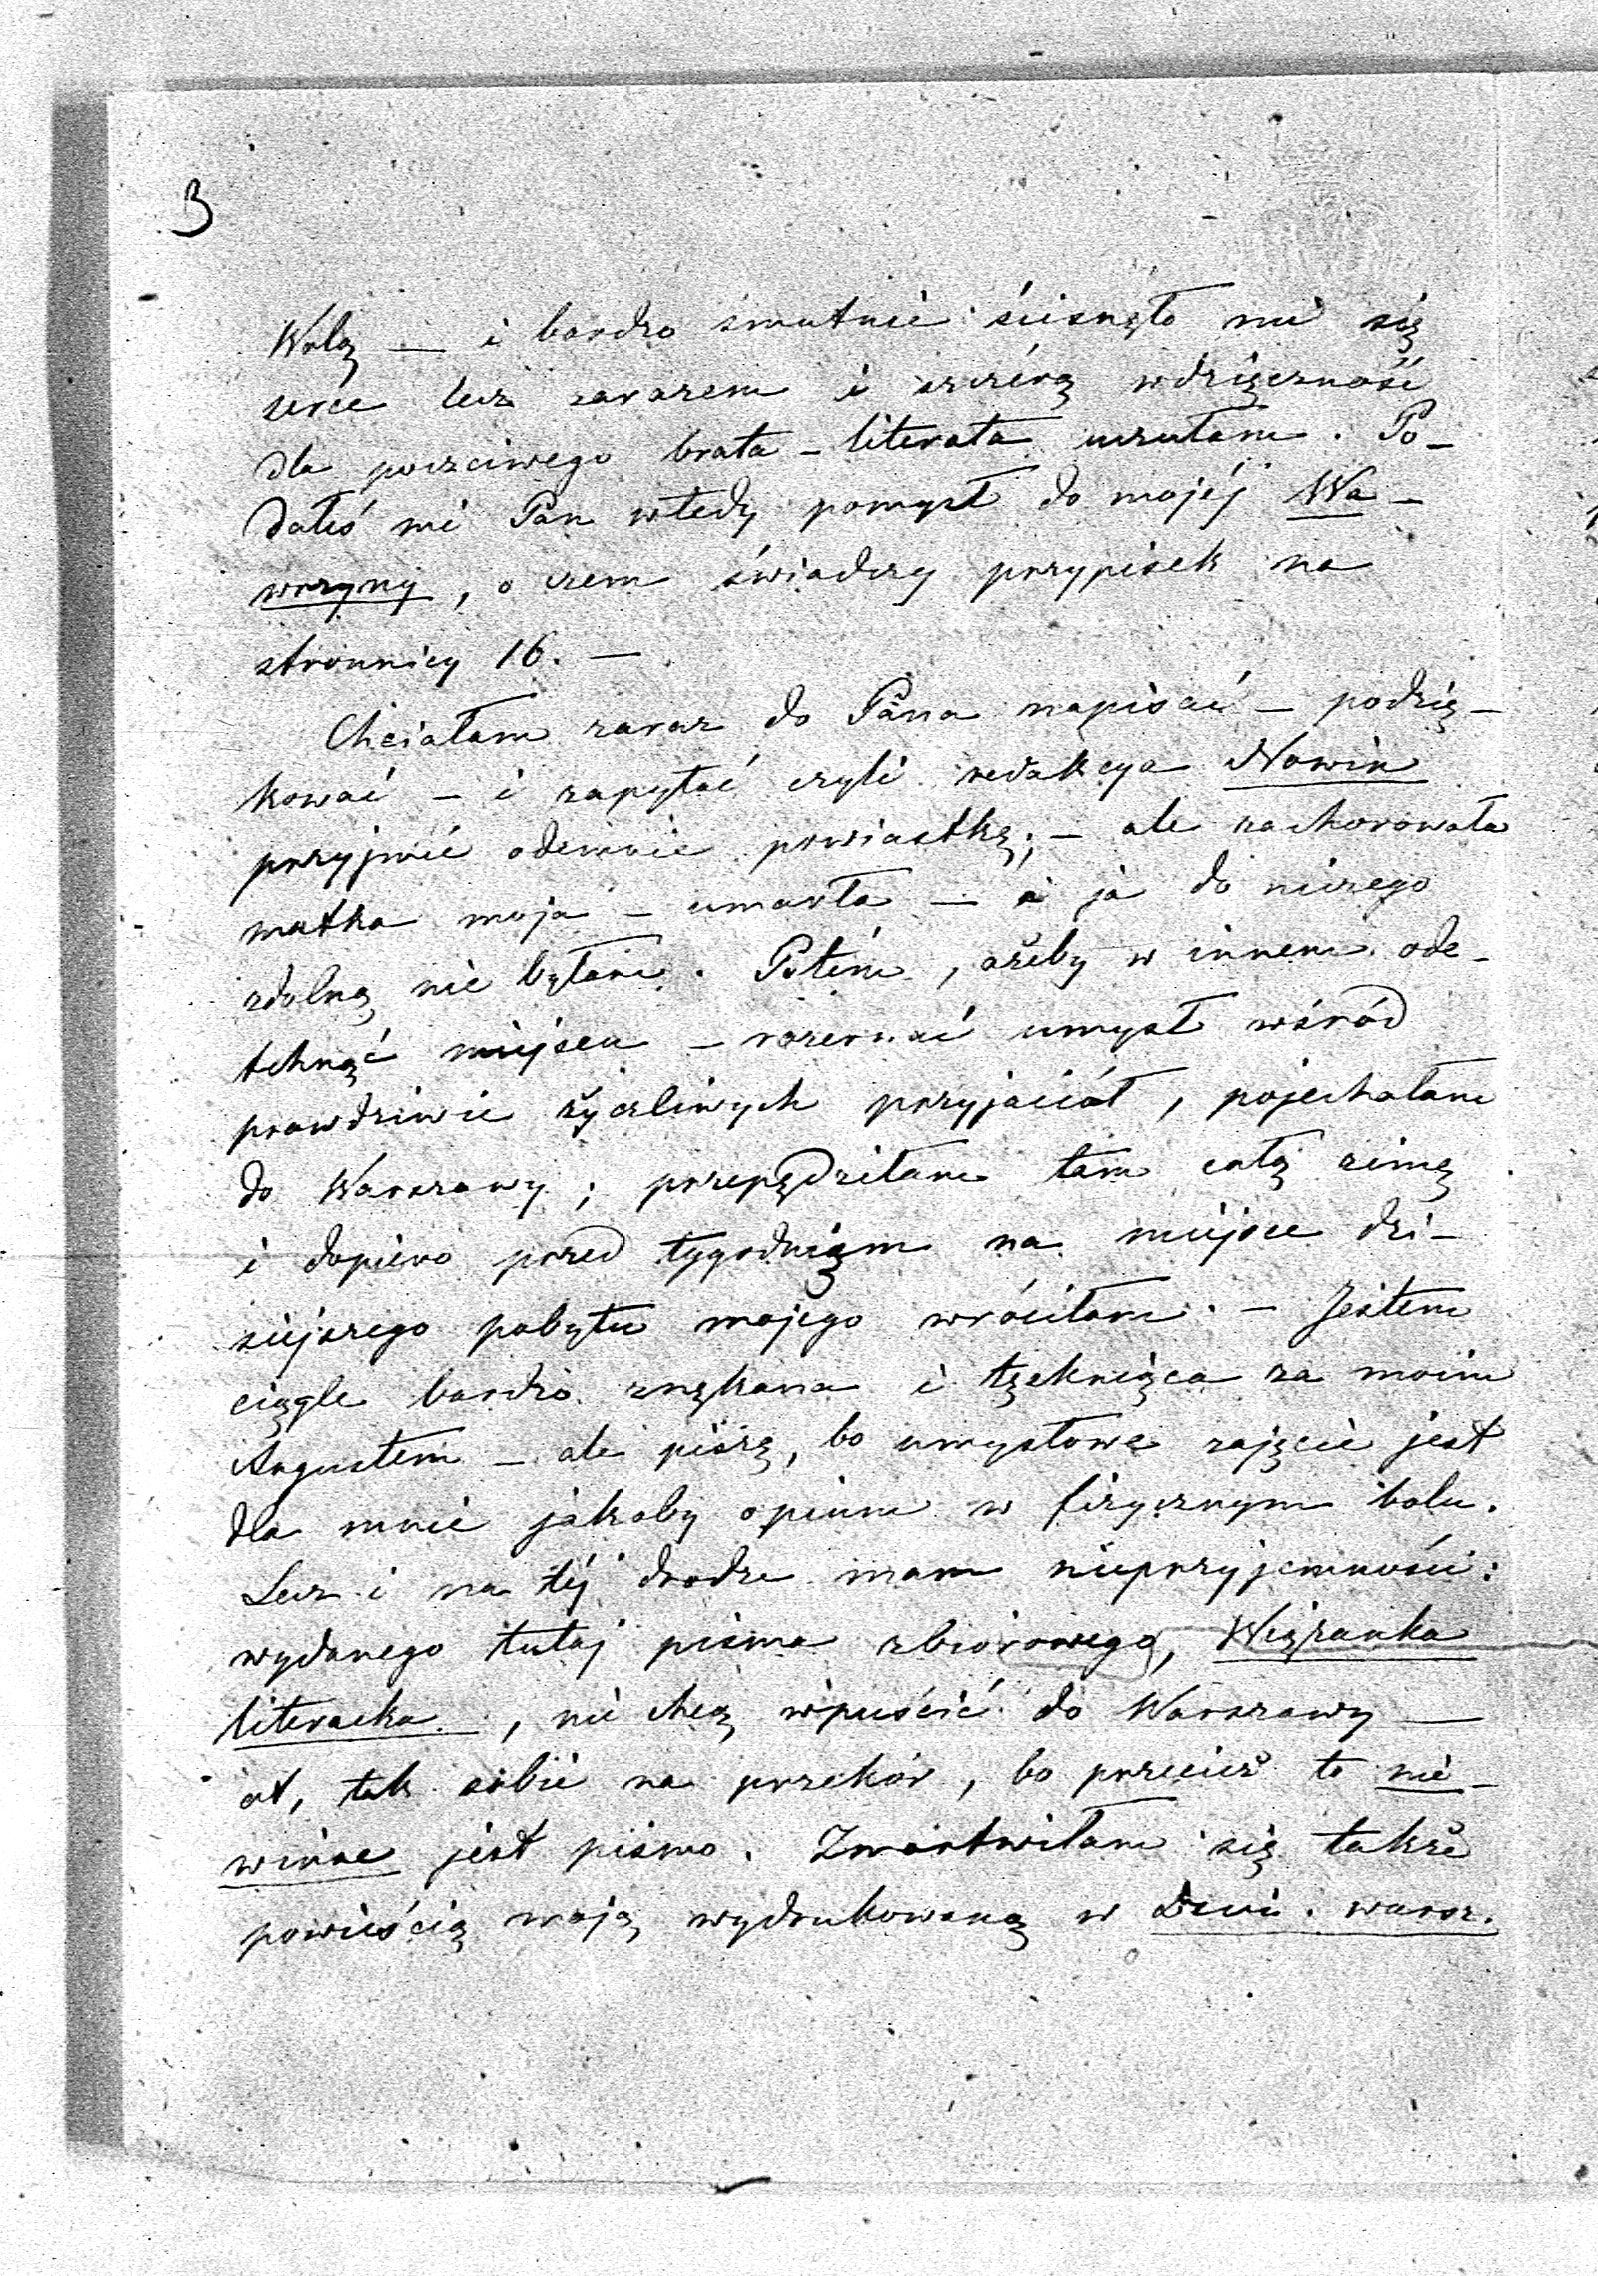 3
Wolą — i bardzo smutnie ścisnęło mi się
serce lecz zarazem i szczérą wdzięczność
dla poczciwego brata-literata uczułam. Po-
dałeś mi Pan wtedy pomysł do mojéj Wa-
wrzyny, o czem świadczy przypisek na
stronnicy 16. —
Chciałam zaraz do Pana napisać — podzię-
kować — i zapytać czyli redakcya Nowin
przyjmie odemnie powiastkę; — ale zachorowała
matka moja — umarła — a ja do niczego
zdolną nie byłam. Potém, ażeby w innem ode-
tchnąć miejscu — rozerwać umysł wśród
prawdziwie życzliwych przyjaciół, pojechałam
do Warszawy; przepędziłam tam całą zimę
i dopiero przed tygodniem na miejsce dzi-
siejszego pobytu mojego wróciłam. — Jestem
ciągle bardzo znękana i tęskniąca za moim
Augustem — ale piszę, bo umysłowe zajęcie jest
dla mnie jakoby opium w fizycznym bolu.
Lecz i na téj drodze mam nieprzyjemności:
wydanego tutaj pisma zbiorowego, Wiązanka
literacka, nie chcą wpuścić do Warszawy —
ot, tak sobie na przekór, bo przecież to nie-
winne jest pismo. Zmartwiłam się także
powieścią moją wydrukowaną w Dzien. warsz.